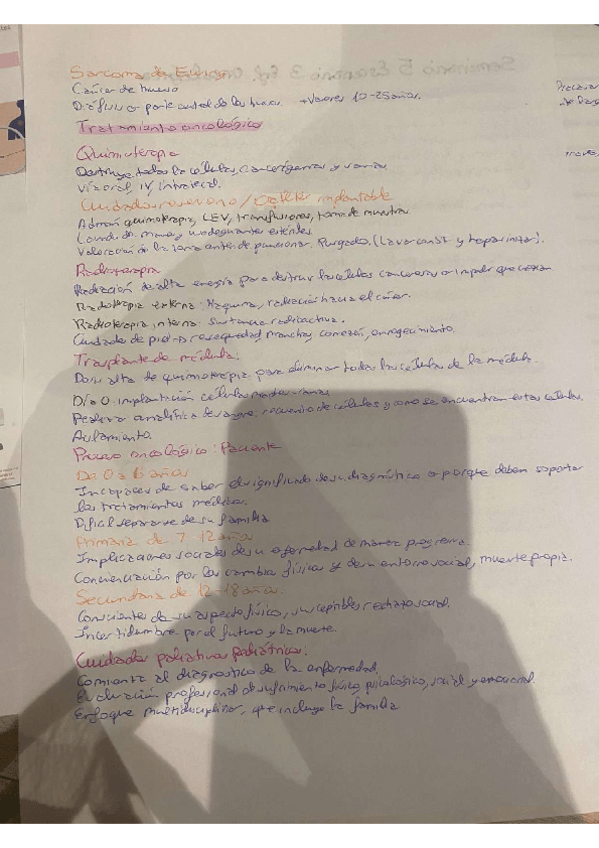 Sarcoma de Ewing
Cáncer de hueso
Diáfisis o parte central de los huesos. +Varones 10-25 años.
Tratamiento oncológico
Quimioterapia
Destruye todas las células, cancerígenas y sanas
Vía oral, IV, intratecal.
Cuidados reservorio / catéter implantable
Admón quimioterapia, LEV, transfusiones, toma de muestras
Lavado de manos y uso de guantes estériles
Valoración de la zona antes de puncionar. Purgado. (Lavar con SF y heparinizar).
Radioterapia
Radiación de alta energía para destruir las células cancerosas o impedir que crezca
Radioterapia externa: Máquina, radiación hacia el cáncer.
Radioterapia interna: Sustancia radioactiva.
Cuidado de piel → resequedad, manchas, comezón, enrojecimiento.
Trasplante de médula.
Dosis alta de quimioterapia para eliminar todas las células de la médula.
Día 0 implantación células madre sanas
Realizar analítica de sangre: recuento de células y como se encuentran estas células.
Aislamiento.
Proceso oncológico: Paciente
De 0 a 6 años
Incapaces de saber el significado de su diagnóstico o porque deben soportar
los tratamientos médicos.
Dificil separarse de su familia
Primaria de 7-12 años
Implicaciones sociales de su enfermedad de manera progresiva.
Concienciación por los cambios físicos y de su entorno social, muerte propia.
Secundaria de 12-18 años.
Conscientes de su aspecto físico, susceptibles rechazo social.
Incertidumbre por el futuro y la muerte.
Cuidados paliativos pediátricos.
Comienza al diagnostico de la enfermedad.
Evaluación profesional del sufrimiento físico, psicológico, social y emocional.
Enfoque multidisciplinar, que incluye la familia